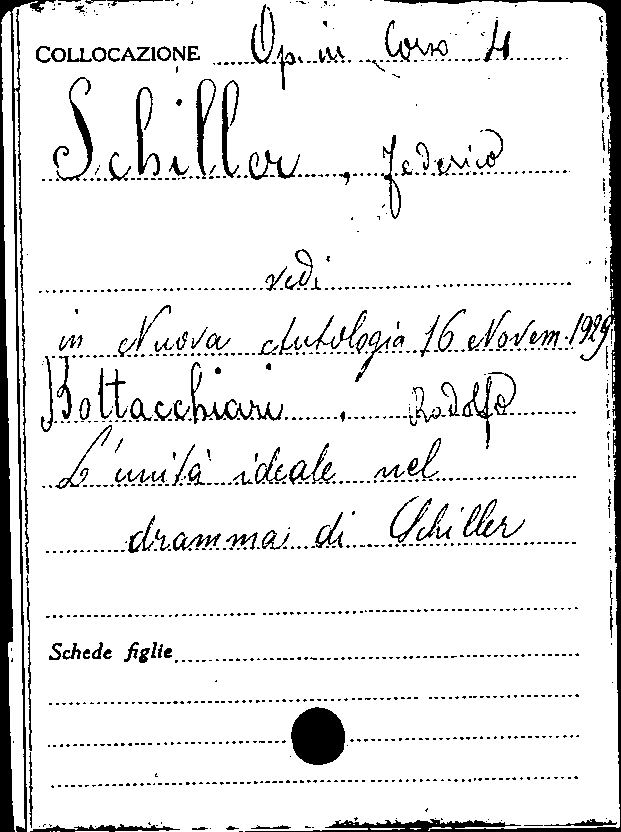 COLLOCAZIONE Op. in Corso 4
Schiller, Federico
vedi
in Nuova Antologia 16 Novem. 1929
Bottacchiari, Rodolfo
L'unità ideale nel
dramma di Schiller
Schede figlie